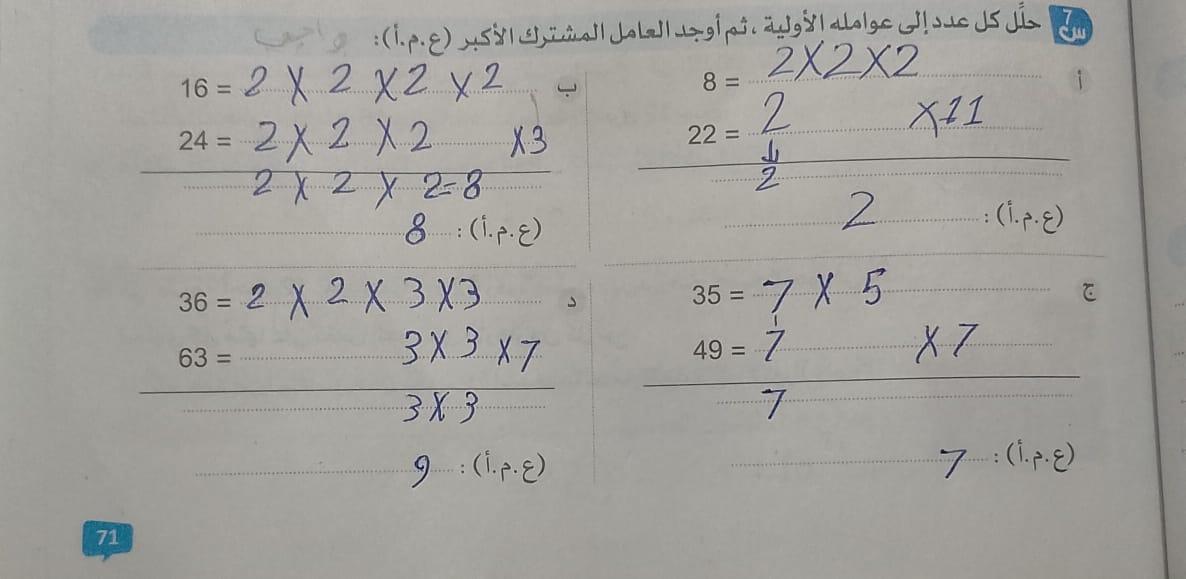 س 7 حلِّل كل عدد إلى عوامله الأولية، ثم أوجد العامل المشترك الأكبر (ع.م.أ): واجب
أ
8 = 2 X 2 X 2
22 = 2 X 11
2
(ع.م.أ): 2
ب
16 = 2 X 2 X 2 X 2
24 = 2 X 2 X 2 X 3
2 X 2 X 2 = 8
(ع.م.أ): 8
ج
35 = 7 X 5
49 = 7 X 7
7
(ع.م.أ): 7
د
36 = 2 X 2 X 3 X 3
63 = 3 X 3 X 7
3 X 3
(ع.م.أ): 9
71